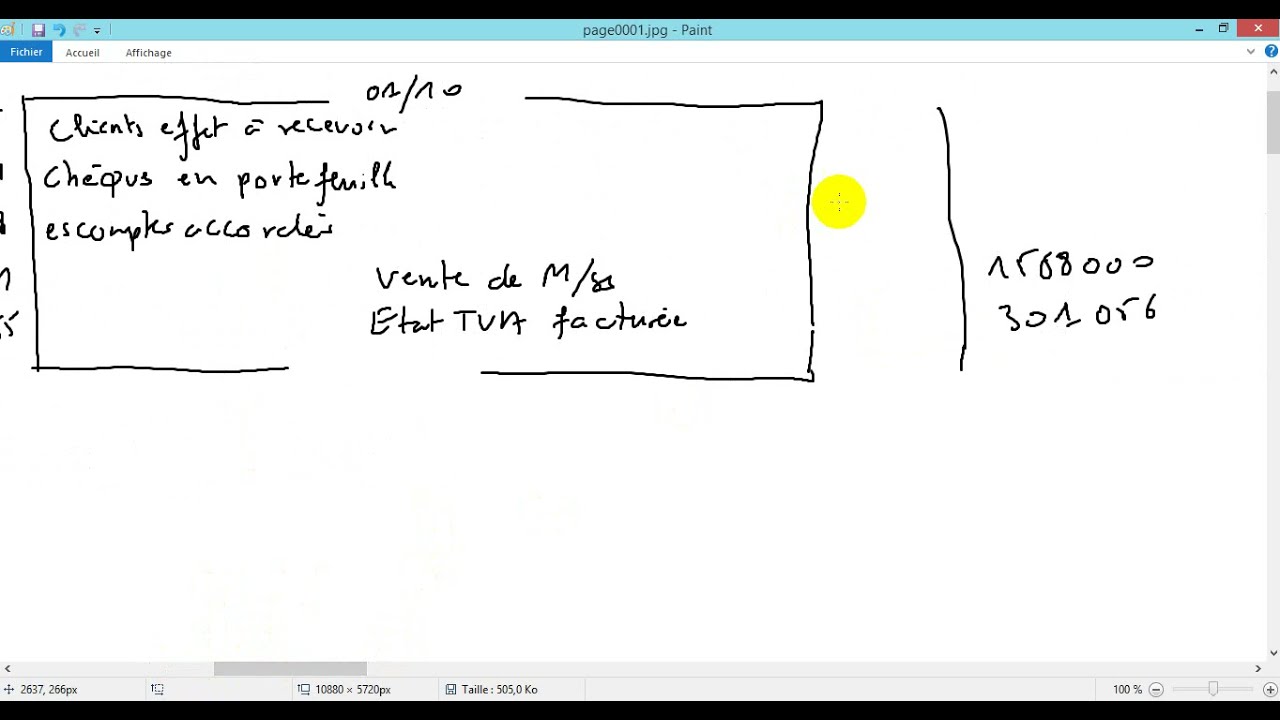 page0001.jpg - Paint
Fichier Accueil Affichage
01/10
Clients effet à recevoir
Chèques en portefeuille
escomptes accordés
vente de M/ses 1568000
Etat TVA facturée 301056
2637, 266px 10880 × 5720px Taille : 505,0 Ko 100 %